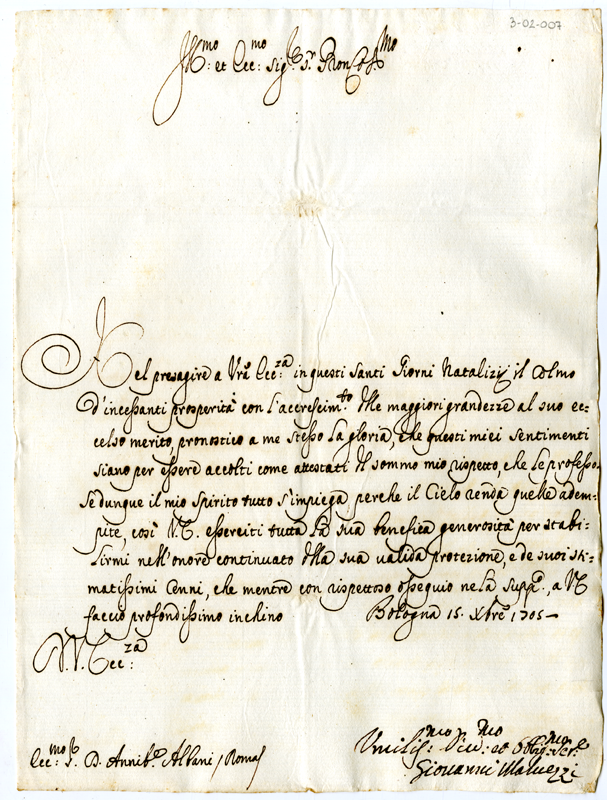 3-02-007
Ill.mo: et Ecc.mo: Sig.r S.r Pron Col.mo
Nel presagire a Vrã Ecc.za: in questi Santi Giorni Natalizij il Colmo
d'incessanti prosperità con l'accrescim.to delle maggiori grandezze al suo ec-
celso merito, pronostico a me stesso la gloria, che questi miei sentimenti
siano per essere accolti come attestati del sommo mio rispetto, che le professo.
Se dunque il mio spirito tutto s'impiega perche il Cielo renda quelle adem-
pite, così V.E. esserciti tutta la sua benefica generosità per stabi-
lirmi nell'onore continuato della sua valida protezione, e de suoi sti-
matissimi cenni, che mentre con rispettoso ossequio ne la supp.o, a VE
faccio profondissimo inchino Bologna 15. Xbre 1705
V.V. Ecc.za:
Ecc.mo S. D. Annib.e Albani / Roma
Umiliss.mo: Div.mo: et Obblig.mo: Ser.e
Giovanni Malvezzi